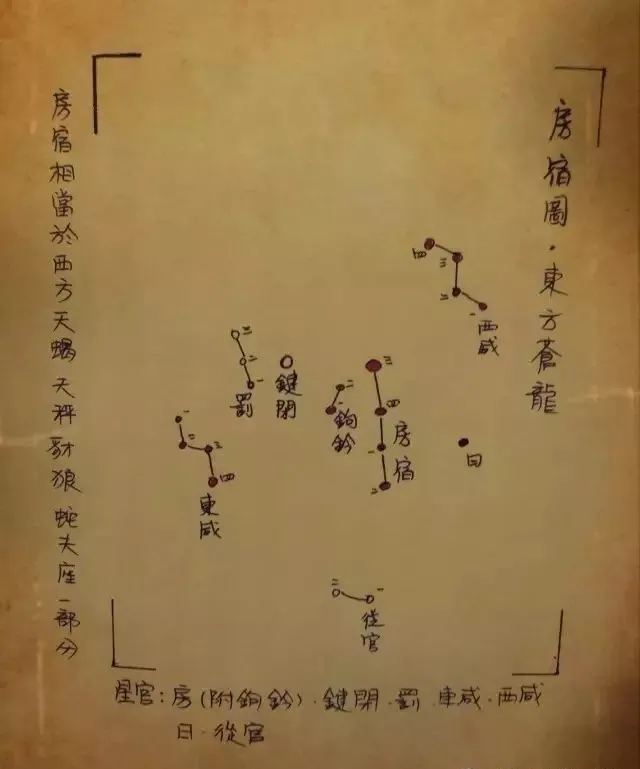 房宿圖·東方蒼龍
房宿相當於西方天蝎天秤豺狼蛇夫座一部分
四
三
二
一
西咸
三
二
一
罰
鍵閉
二
一
鉤鈐
三
四
一
二
房宿
日
一
二
三
四
東咸
二
一
從官
星官：房(附鉤鈐)·鍵閉·罰·東咸·西咸
日·從官